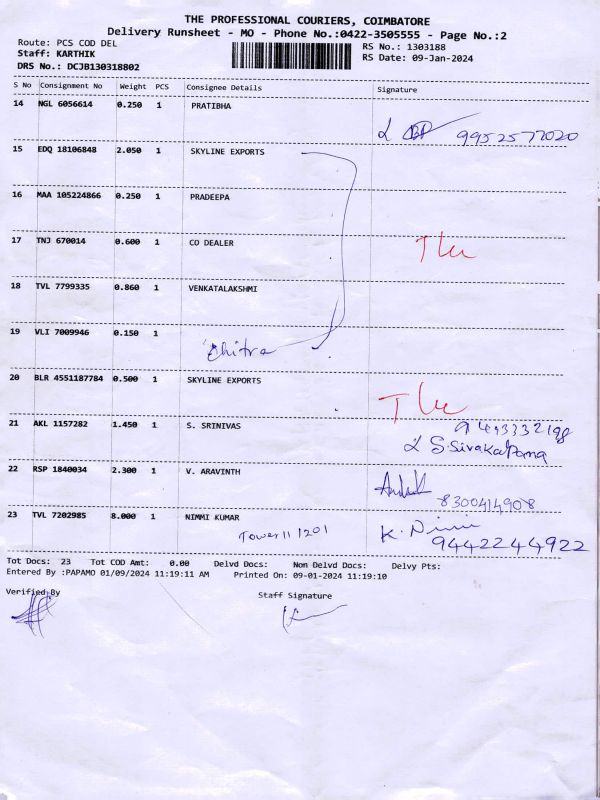 THE PROFESSIONAL COURIERS, COIMBATORE
Delivery Runsheet - MO - Phone No.:0422-3505555 - Page No.:2
Route: PCS COD DEL
RS No.: 1303188
Staff: KARTHIK
RS Date: 09-Jan-2024
DRS No.: DCJB130318802
S No Consignment No Weight PCS Consignee Details Signature
14 NGL 6056614 0.250 1 PRATIBHA
9952577020
15 EDQ 18106848 2.050 1 SKYLINE EXPORTS
16 MAA 105224866 0.250 1 PRADEEPA
17 TNJ 670014 0.600 1 CO DEALER
18 TVL 7799335 0.860 1 VENKATALAKSHMI
19 VLI 7009946 0.150 1
Chitra
20 BLR 4551187784 0.500 1 SKYLINE EXPORTS
21 AKL 1157282 1.450 1 S. SRINIVAS
22 RSP 1840034 2.300 1 V. ARAVINTH
8300414908
23 TVL 7202985 8.000 1 NIMMI KUMAR
Tower 11 1201
9442244922
Tot Docs: 23 Tot COD Amt: 0.00 Delvd Docs: Non Delvd Docs: Delvy Pts:
Entered By :PAPAMO 01/09/2024 11:19:11 AM Printed On: 09-01-2024 11:19:10
Verified By
Staff Signature